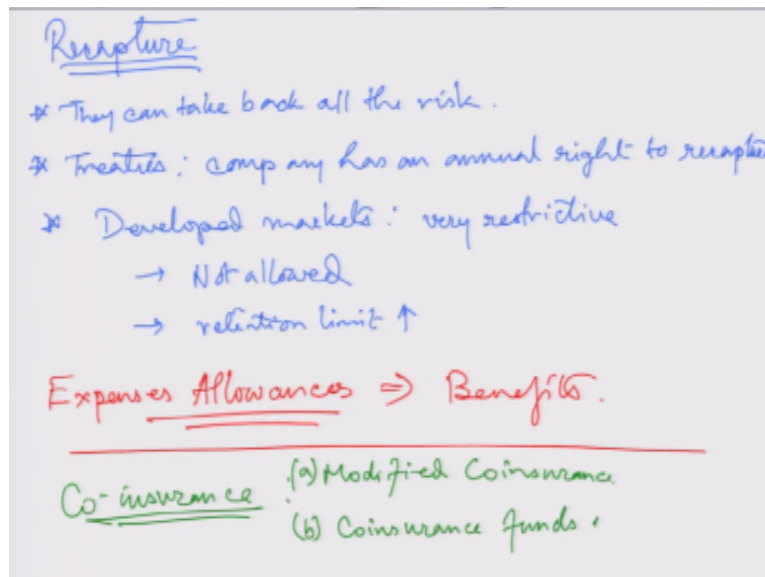 Recapture
* They can take back all the risk.
* Treaties: company has an annual right to recapture
* Developed markets: very restrictive
→ Not allowed
→ retention limit ↑
Expenses Allowances ⇒ Benefits.
Co-insurance : (a) Modified Coinsurance
(b) Coinsurance funds.